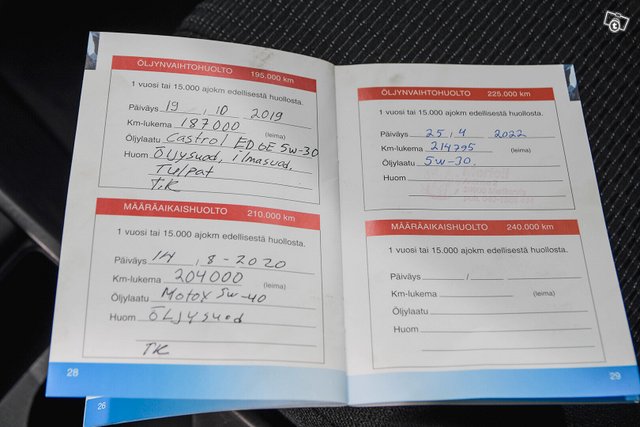 ÖLJYNVAIHTOHUOLTO 195.000 km
1 vuosi tai 15.000 ajokm edellisestä huollosta.
Päiväys 19 . 10 2019
Km-lukema 187000 (leima)
Öljylaatu Castrol EDGE 5w-30
Huom Öljysuod, ilmasuod,
Tulpat
T.K
MÄÄRÄAIKAISHUOLTO 210.000 km
1 vuosi tai 15.000 ajokm edellisestä huollosta.
Päiväys 14 . 8 - 2020
Km-lukema 204000 (leima)
Öljylaatu Motox 5w-40
Huom ÖLJYSUOD
TK
28
26
ÖLJYNVAIHTOHUOLTO 225.000 km
1 vuosi tai 15.000 ajokm edellisestä huollosta.
Päiväys 25 . 4 2022
Km-lukema 214795 (leima)
Öljylaatu 5w-30.
Huom
MÄÄRÄAIKAISHUOLTO 240.000 km
1 vuosi tai 15.000 ajokm edellisestä huollosta.
Päiväys /
Km-lukema (leima)
Öljylaatu
Huom
29